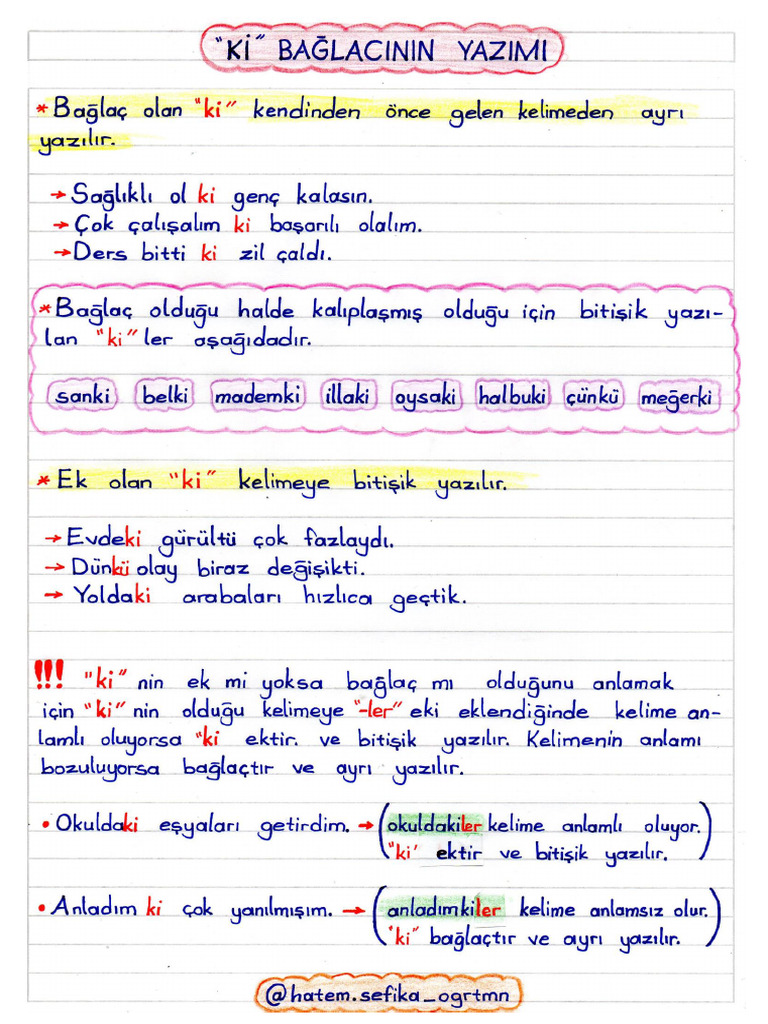 "Kİ" BAĞLACININ YAZIMI
* Bağlaç olan "ki" kendinden önce gelen kelimeden ayrı
yazılır.
→ Sağlıklı ol ki genç kalasın.
→ Çok çalışalım ki başarılı olalım.
→ Ders bitti ki zil çaldı.
* Bağlaç olduğu halde kalıplaşmış olduğu için bitişik yazı-
lan "ki" ler aşağıdadır.
sanki belki mademki illaki oysaki halbuki çünkü meğerki
* Ek olan "ki" kelimeye bitişik yazılır.
→ Evdeki gürültü çok fazlaydı.
→ Dünkü olay biraz değişikti.
→ Yoldaki arabaları hızlıca geçtik.
!!! "ki" nin ek mi yoksa bağlaç mı olduğunu anlamak
için "ki" nin olduğu kelimeye "-ler" eki eklendiğinde kelime an-
lamlı oluyorsa "ki ektir. ve bitişik yazılır. Kelimenin anlamı
bozuluyorsa bağlaçtır ve ayrı yazılır.
• Okuldaki eşyaları getirdim. → (okuldakiler kelime anlamlı oluyor.
"ki' ektir ve bitişik yazılır.)
• Anladım ki çok yanılmışım. → (anladımkiler kelime anlamsız olur.
"ki" bağlaçtır ve ayrı yazılır.)
@hatem.sefika_ogrtmn